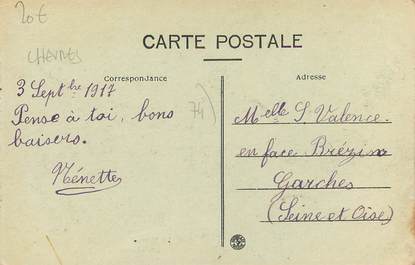 20€
CHEVRES
CARTE POSTALE
Correspondance
Adresse
3 Septbre 1917
Pense à toi, bons
baisers.
Nénette
74
Melle S. Valence
en face Brézin
Garches
(Seine et Oise)